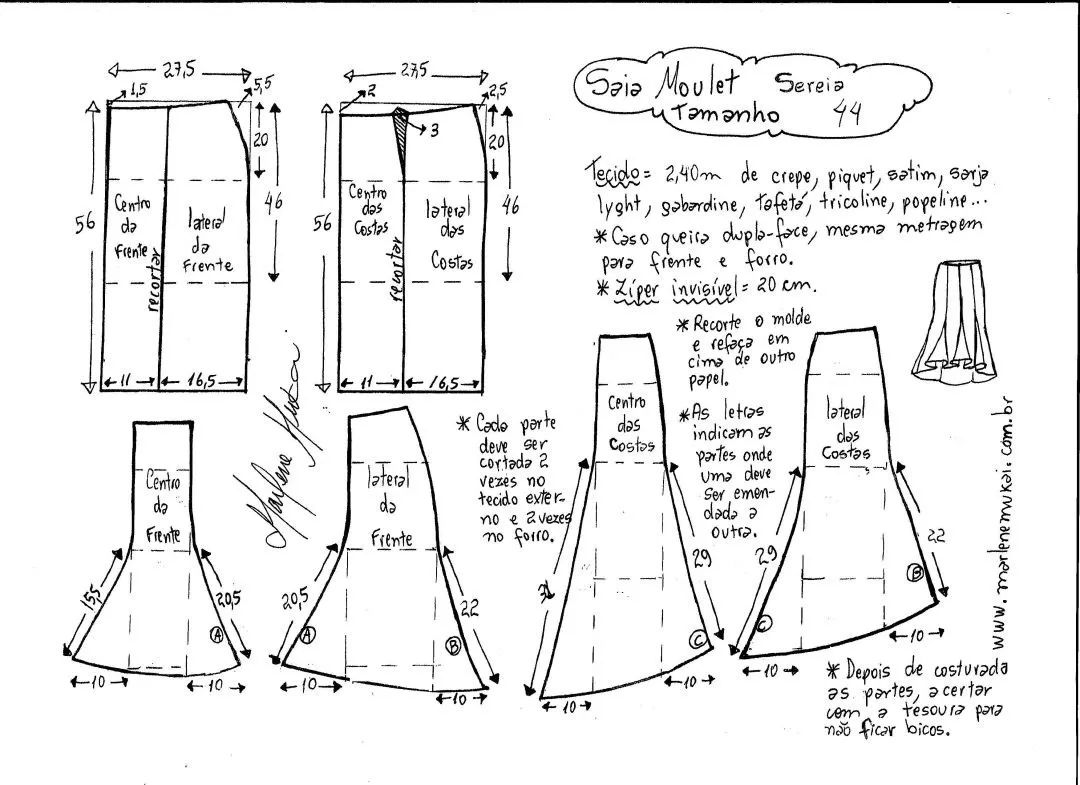 Saia Moulet Sereia
Tamanho 44
27,5
1,5
5,5
20
46
56
Centro
da
Frente
recortar
lateral
da
Frente
11
16,5
27,5
2
2,5
3
20
46
56
Centro
das
Costas
recortar
lateral
das
Costas
11
16,5
Tecido = 2,40m de crepe, piquet, satim, sarja
lyght, gabardine, tafetá, tricoline, popeline...
* Caso queira dupla-face, mesma metragem
para frente e forro.
* Zíper invisível = 20 cm.
* Recorte o molde
e refaça em
cima de outro
papel.
* As letras
indicam as
partes onde
uma deve
ser emen-
dada a
outra.
* Cada parte
deve ser
cortada 2
vezes no
tecido exter-
no e 2 vezes
no forro.
Marlene Mukai
Centro
da
Frente
15,5
20,5
A
10
10
lateral
da
Frente
20,5
22
A
B
10
10
Centro
das
Costas
29
C
10
10
lateral
das
Costas
29
22
C
B
10
10
www.marlenemukai.com.br
* Depois de costurada
as partes, acertar
com a tesoura para
não ficar bicos.